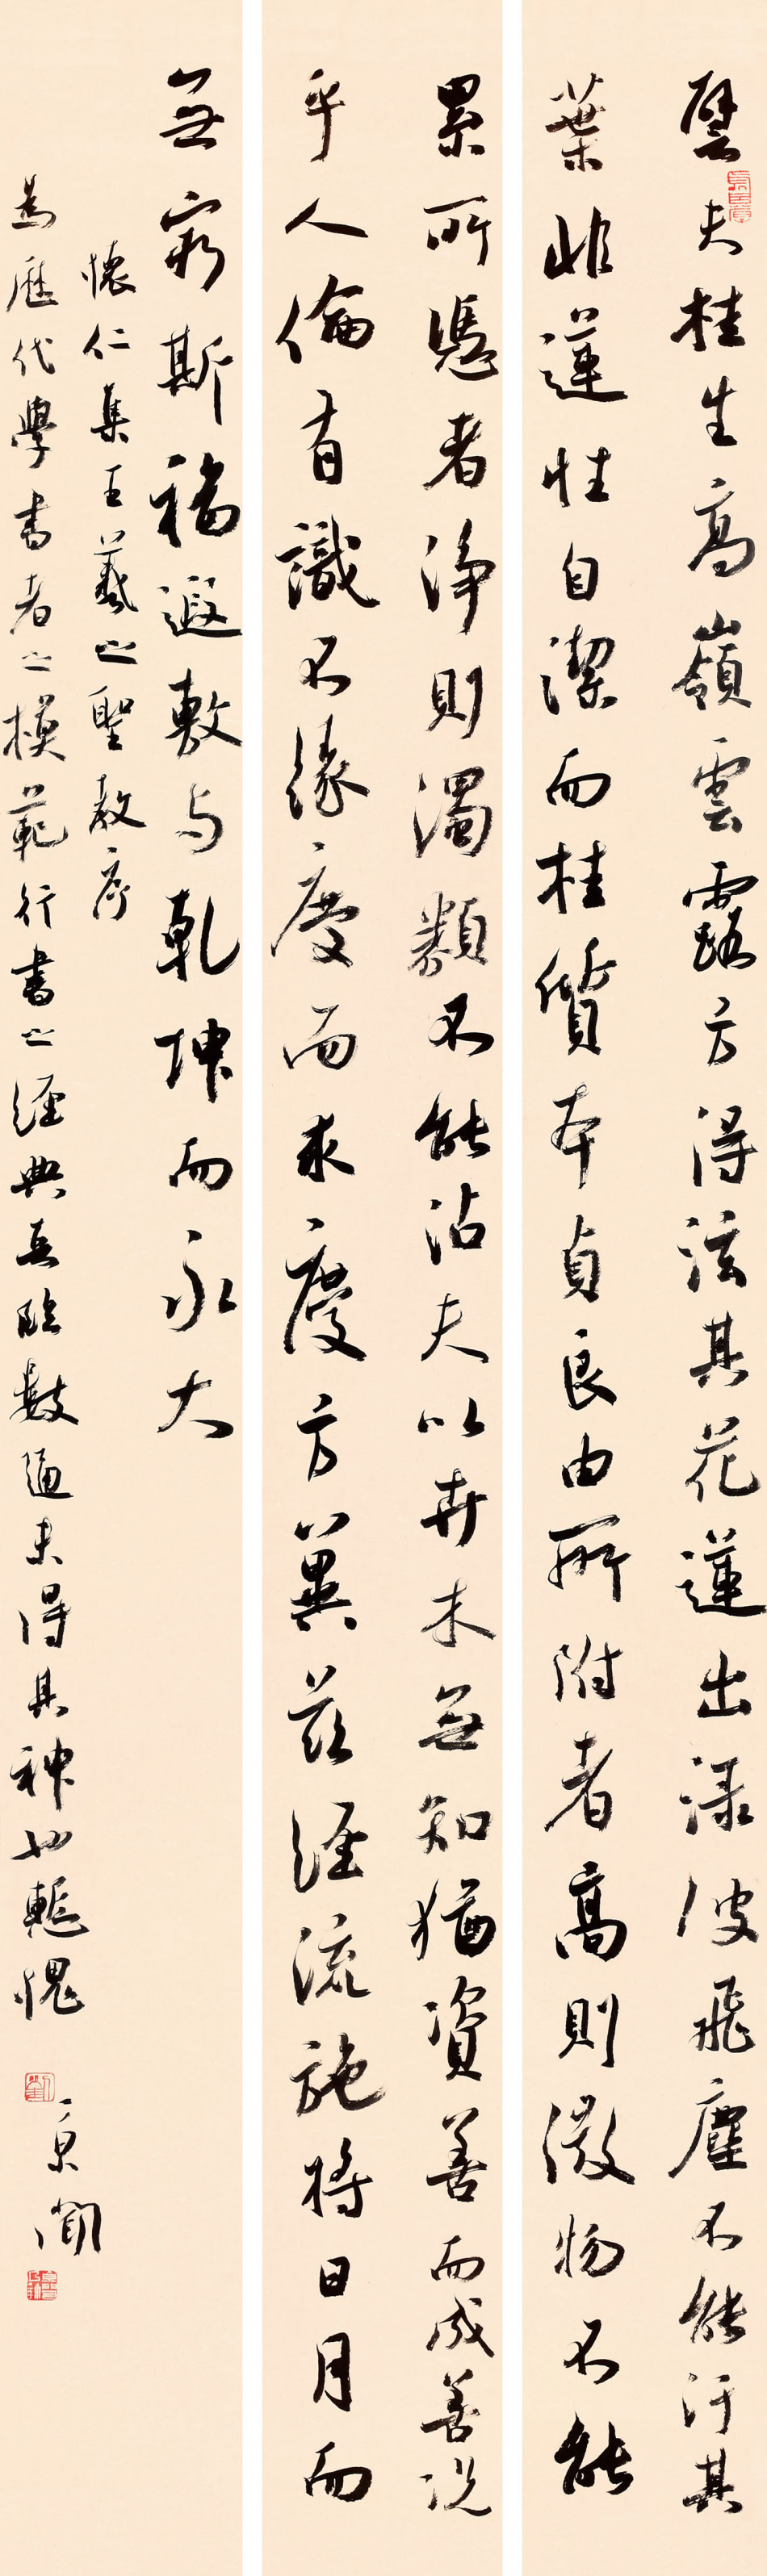 譬夫桂生高嶺雲露方得泫其花蓮出渌波飛塵不能汙其
葉非蓮性自潔而桂質本貞良由所附者高則微物不能
累所憑者淨則濁類不能沾夫以卉木無知猶資善而成善況
乎人倫有識不緣慶而求慶方冀茲經流施將日月而
無窮斯福遐敷与乾坤而永大
懷仁集王羲之聖教序
為歷代學書者之模範行書之經典吾臨數通未得其神也輒愧
京聞